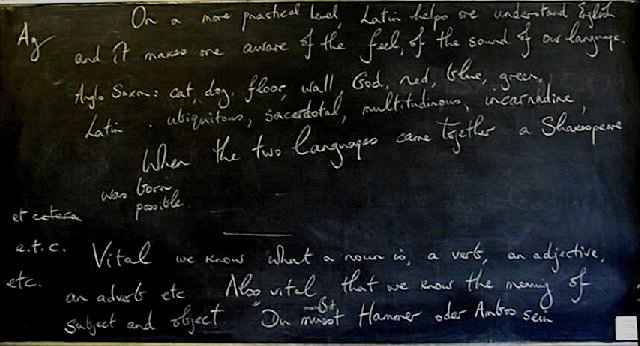 Ag
On a more practical level, Latin helps one understand English
and it makes one aware of the feel, of the sound of our language.
Anglo Saxon: cat, dog, floor, wall, God, red, blue, green,
Latin: ubiquitous, sacerdotal, multitudinous, incarnadine,
When the two languages came together a Shakespeare
was born
possible.
et cetera
e.t.c. Vital we know what a noun is, a verb, an adjective,
etc. an adverb etc Also vital that we know the meaning of
subject and object "Du musst Hammer oder Ambos sein